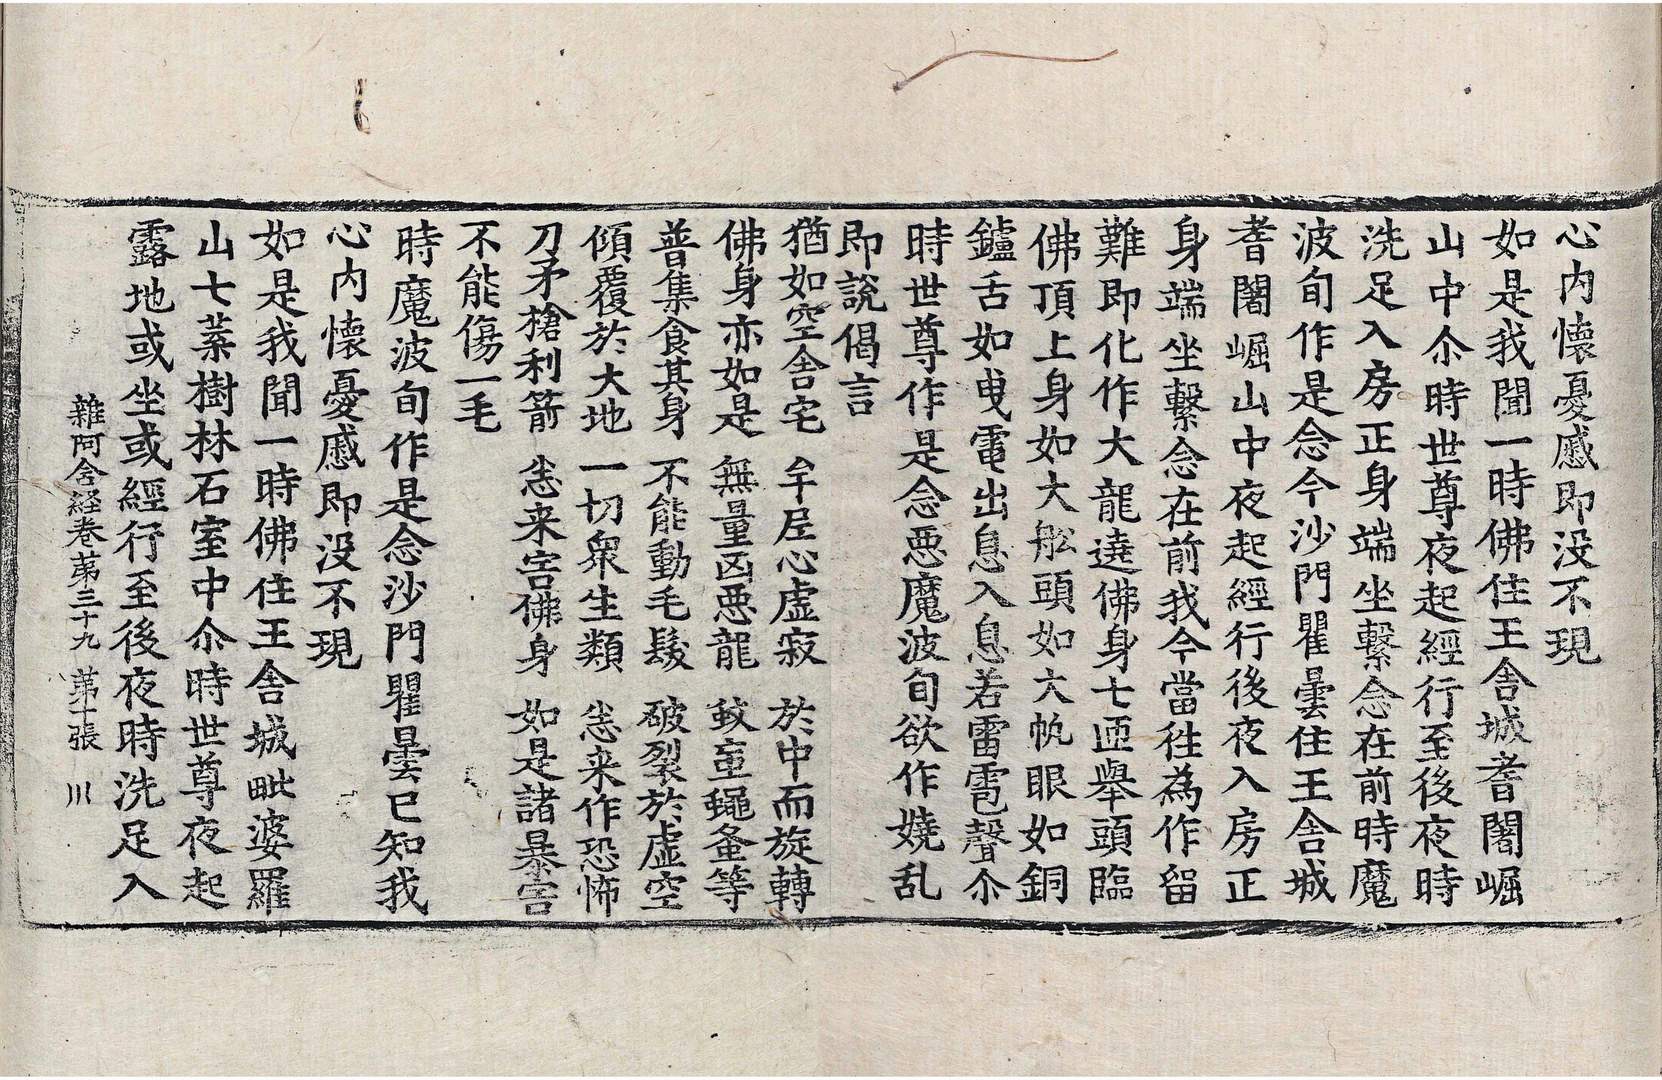 心内懷憂慼即没不現
如是我聞一時佛住王舍城耆闍崛
山中尒時世尊夜起經行至後夜時
洗足入房正身端坐繫念在前時魔
波旬作是念今沙門瞿曇住王舍城
耆闍崛山中夜起經行後夜入房正
身端坐繫念在前我今當往為作留
難即化作大龍遶佛身七匝舉頭臨
佛頂上身如大舩頭如大帆眼如銅
鑪舌如曳電出息入息若雷雹聲尒
時世尊作是念惡魔波旬欲作嬈乱
即說偈言
猶如空舍宅 牟尼心虛寂 於中而旋轉
佛身亦如是 無量凶惡龍 蚊䖟蠅蚤等
普集食其身 不能動毛髮 破裂於虛空
傾覆於大地 一切衆生類 悉来作恐怖
刀矛槍利箭 悉来害佛身 如是諸暴害
不能傷一毛
時魔波旬作是念沙門瞿曇已知我
心内懷憂慼即没不現
如是我聞一時佛住王舍城毗婆羅
山七葉樹林石室中尒時世尊夜起
露地或坐或經行至後夜時洗足入
雜阿含経卷第三十九 第十張 川